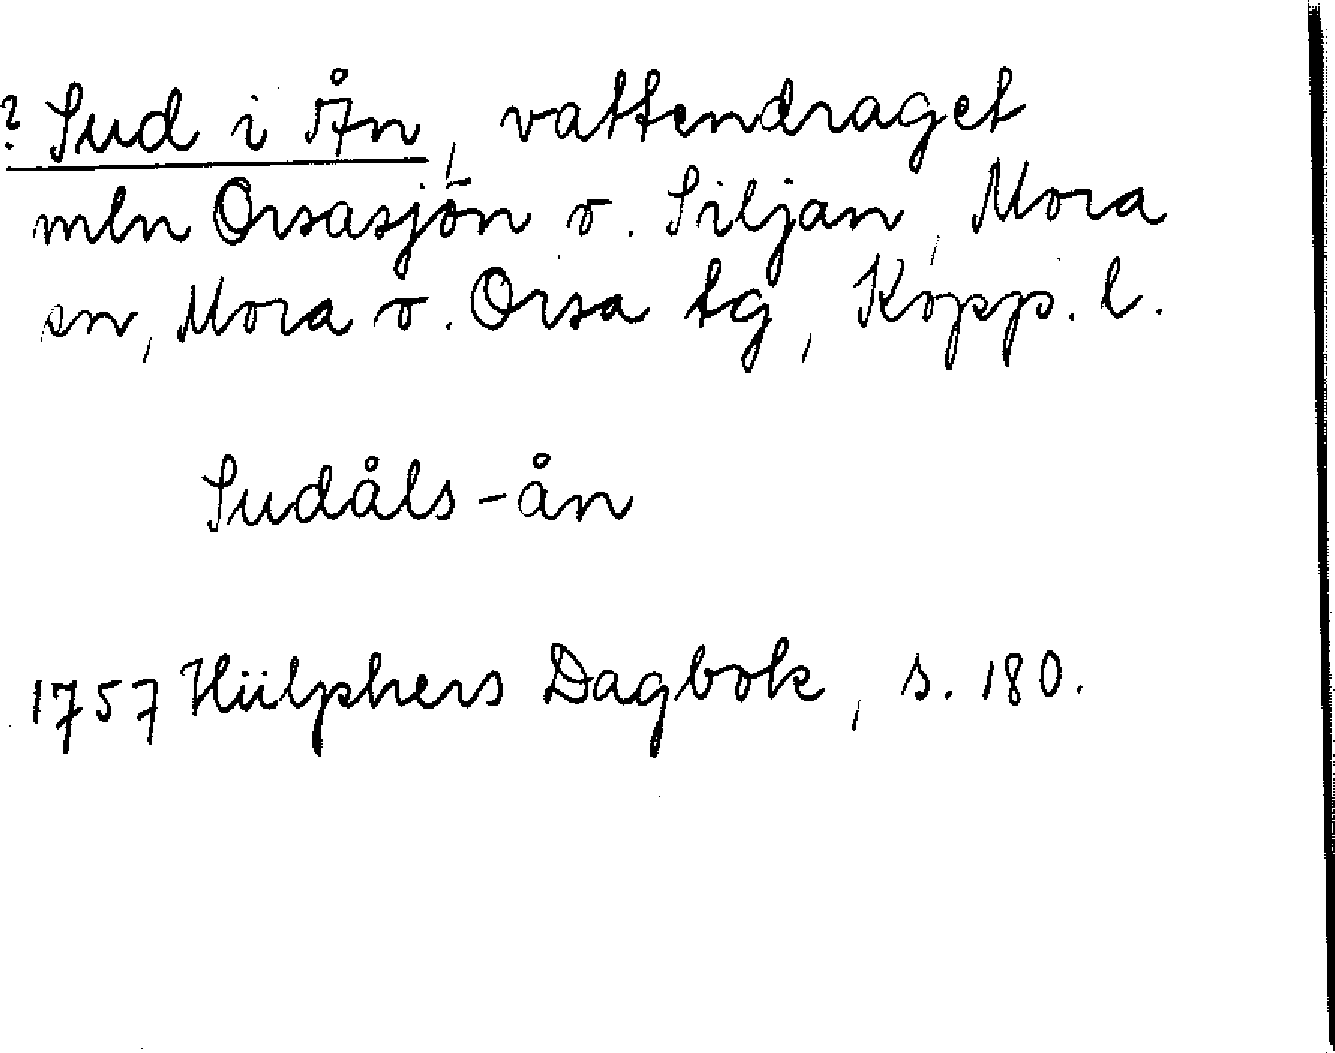 ? Sud i Ån, vattendraget
mln Orsasjön o. Siljan, Mora
sn, Mora o. Orsa tg, Kopp. l.
Sudåls-ån
1757 Hülphers Dagbok, s. 180.